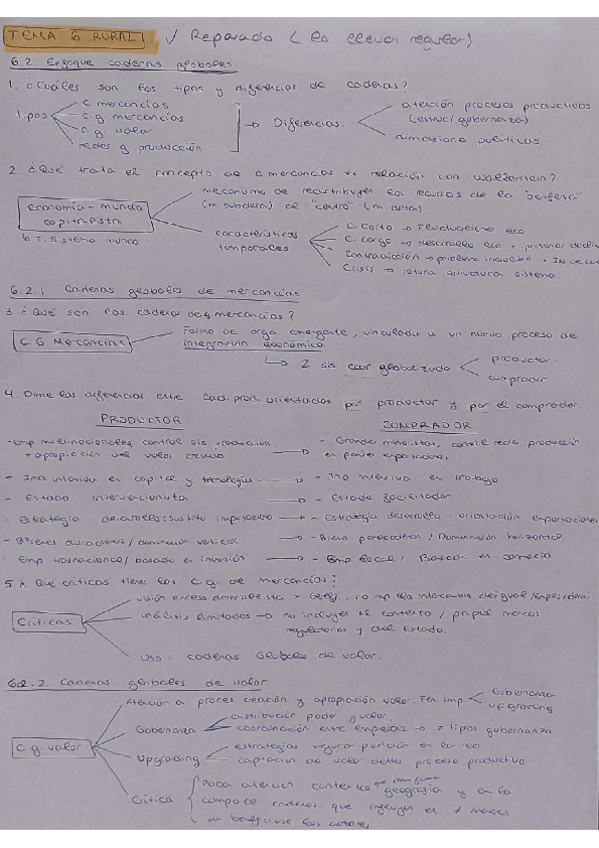 TEMA 6 RURAL √ Repasado (Lo llevo regular)
6.2 Enfoque cadenas globales
1. ¿Cuáles son los tipos y diferencias de cadenas?
Tipos
C mercancías
C. g. mercancías
C. g. valor
redes g producción
→ Diferencias:
atención procesos productivos
(estruc/gobernanza)
dimensiones políticas
2. ¿Qué trata el concepto de c.mercancías relación con Wallerstein?
economía-mundo
capitalista
T. Sistema mundo
mecanismo de redistribuye los recursos de la "periferia"
al "centro"
características
temporales
C. Corto → Fluctuaciones eco
C. Largo → desarrollo eco
Contradicción → problema
Crisis → rotura estructura sistema.
6.2.1 Cadenas globales de mercancías
3 ¿Qué son las cadenas de g mercancías?
C G Mercancías
Forma de orga emergente, vinculada a un nuevo proceso de
integración económica
→ 2 sis globalizado
productor.
comprador
4. Dime las diferencias entre cad.prod orientadas por productor y por el comprador.
PRODUCTOR COMPRADOR
- Emp multinacionales control sis producción → - Grandes minoristas, control red producción
+ apropiación del valor creado en países exportadores
- Ind intensiva en capital y tecnología → - Ind intensiva en trabajo
- Estado intervencionista → - Estado facilitador
- Estrategia desarrollo: sustit importación → - Estrategia desarrollo: orientación exportaciones
- Bienes duraderos / dominación vertical → - Bienes perecederos / Dominación horizontal
- Emp trasnacional / basado en inversión → - Emp local / Basado en comercio
5. ¿Qué críticas tiene las C.g. de mercancías?
Críticas
visión exceso intercambio desigual
análisis limitados → no incluyen el contexto / papel marcos
regulatorios y del Estado.
USO: cadenas Globales de valor.
6.2.2. Cadenas globales de valor
C g valor
Atención a proces creación y apropiación valor. Fen imp
Gobernanza
upgrading
Gobernanza
distribución poder y valor
coordinación entre empresas → tipos gobernanza
Upgrading
estrategias mejora posición en la red
captación de valor dentro proceso productivo
Crítica
Poca atención contextos geografía y en la
cadenas que influyen en